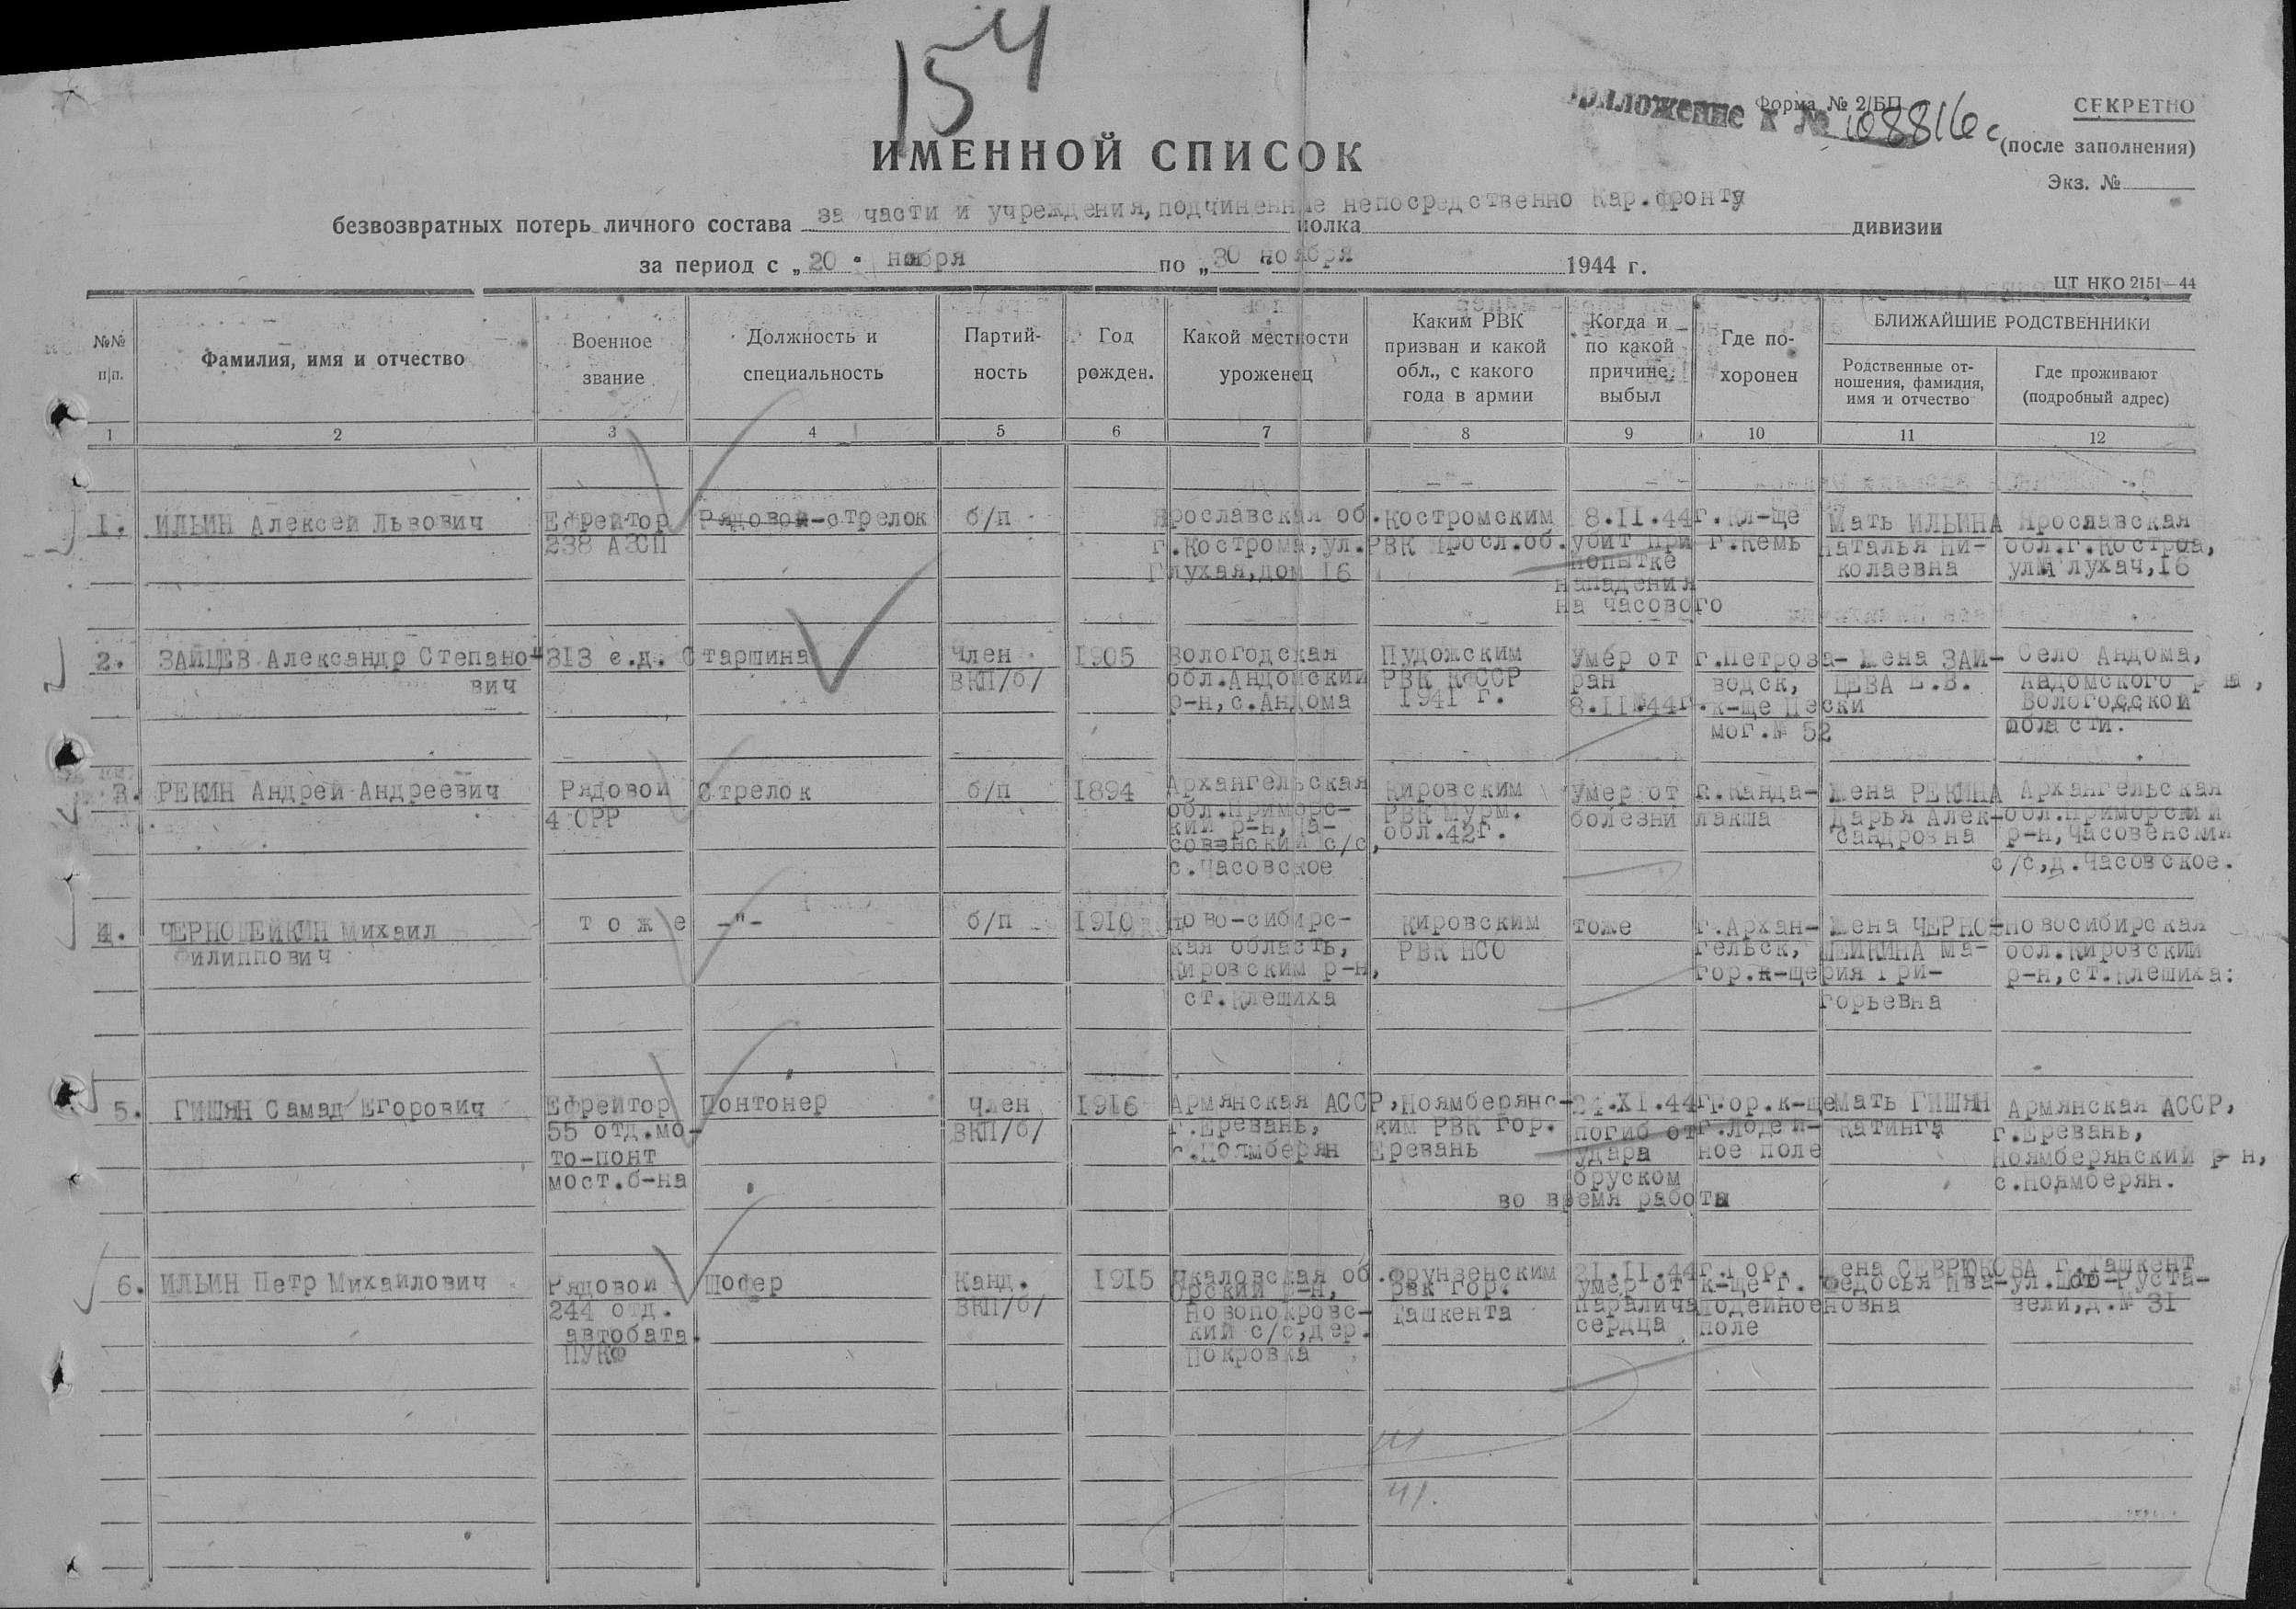 154
Приложение к № 108816с
Форма № 2/БП
СЕКРЕТНО
(после заполнения)
Экз. №
ИМЕННОЙ СПИСОК
безвозвратных потерь личного состава за части и учреждения, подчиненные непосредственно Кар.фронту полка дивизии
за период с „20" ноября по „30" ноября 1944 г.
ЦТ НКО 2151—44
№№ п|п.
Фамилия, имя и отчество
Военное звание
Должность и специальность
Партийность
Год рожден.
Какой местности уроженец
Каким РВК призван и какой обл., с какого года в армии
Когда и по какой причине выбыл
Где похоронен
БЛИЖАЙШИЕ РОДСТВЕННИКИ
Родственные отношения, фамилия, имя и отчество
Где проживают (подробный адрес)
1 2 3 4 5 6 7 8 9 10 11 12
1. ИЛЬИН Алексей Львович
Ефрейтор
238 АЗСП
Рядовой-стрелок
б/п
Ярославская об.
г.Кострома,ул.
Глухая,дом 16
Костромским
РВК Яросл.об.
8.II.44г.
убит при
попытке
нападения
на часового
Кл-ще
г.Кемь
Мать ИЛЬИНА
Наталья Ни-
колаевна
Ярославская
обл.г.Костроа,
ул.Глухач,16
2. ЗАЙЦЕВ Александр Степано-
вич
313 с.д.
Старшина
Член
ВКП/б/
1905
Вологодская
обл.Андомский
р-н,с.Андома
Пудожским
РВК КФССР
1941 г.
Умер от
ран
8.II.44г.
г.Петроза-
водск,
к-ще Пески
мог.№ 52
Жена ЗАЙ-
ЦЕВА Е.В.
Село Андома,
Андомского р на,
Вологодской
области.
3. РЕКИН Андрей Андреевич
Рядовой
4 ОРР
Стрелок
б/п
1894
Архангельская
обл.Приморс-
кий р-н,Ча-
совенский с/с,
с.Часовское
Кировским
РВК Мурм.
обл.42г.
Умер от
болезни
г.Канда-
лакша
Жена РЕКИНА
Дарья Алек-
сандровна
Архангельская
обл.Приморский
р-н,Часовенский
с/с,д.Часовское.
4. ЧЕРНОШЕЙКИН Михаил
Филиппович
т о ж е
-"-
б/п
1910
Ново-сибирс-
кая область,
Кировским р-н,
ст.Клещиха
Кировским
РВК НСО
тоже
г.Архан-
гельск,
гор.к-ще
Жена ЧЕРНО-
ШЕЙКИНА Ма-
рия Гри-
горьевна
Новосибирская
обл.Кировский
р-н,ст.Клещиха:
5. ГИШЯН Самад Егорович
Ефрейтор
55 отд.мо-
то-понт
мост.б-на
Понтонер
Член
ВКП/б/
1916
Армянская АССР,
г.Еревань,
с.Ноямберян
Ноямберянс-
ким РВК гор.
Еревань
21.XI.44г.
погиб от
удара
бруском
во время работы
Гор.к-ще
г.Лодей-
ное поле
Мать ГИШЯН
Катинга
Армянская АССР,
г.Еревань,
Ноямберянский р н,
с.Ноямберян.
6. ИЛЬИН Петр Михайлович
Рядовой
244 отд.
автобата.
ПУКФ
Шофер
Канд.
ВКП/б/
1915
Чкаловская об.
Орский р-н,
Новопокровс-
кий с/с,дер.
Покровка
Фрунзенским
РВК гор.
Ташкента
21.II.44г.
умер от
паралича
сердца
Гор.
к-ще г.
Лодейное
поле
Жена СЕВРЮКОВА
Федосья Ива-
новна
г.Ташкент
ул.Шото-Руста-
вели,д.№ 31